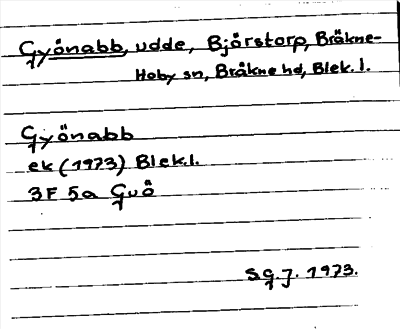 Gyönabb, udde, Björstorp, Bräkne-
Hoby sn, Bräkne hd, Blek. l.
Gyönabb
ek (1973) Blek.l.
3F 5a Guö
S.g.j. 1973.